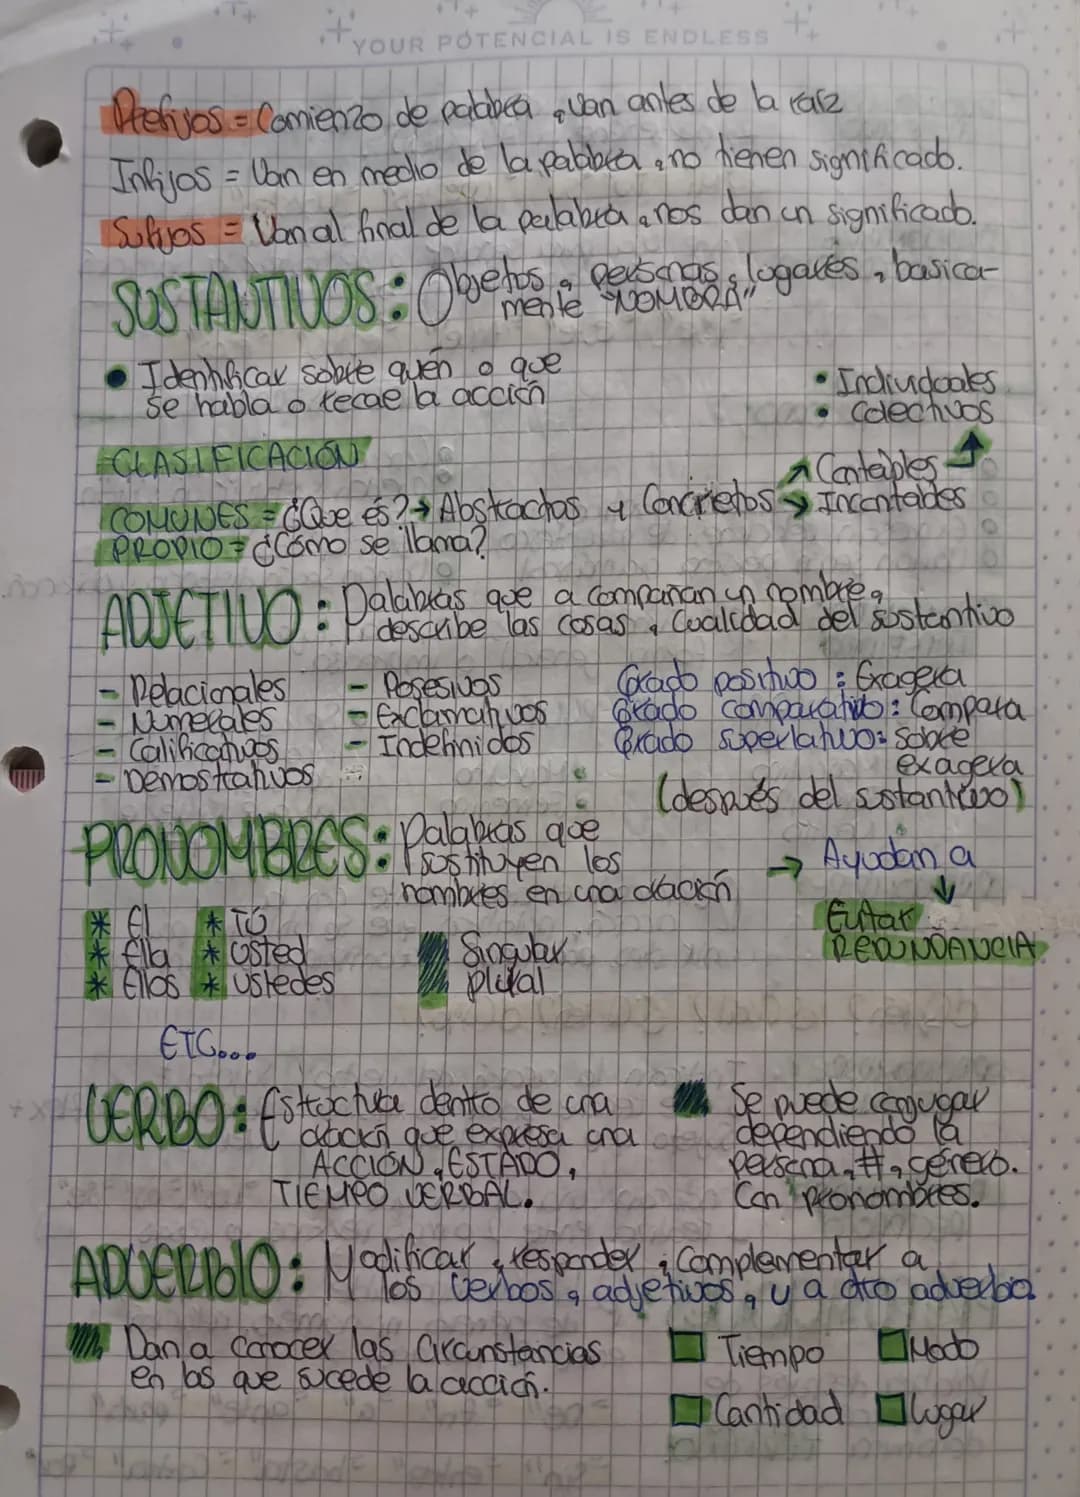 YOUR POTENCIAL IS ENDLESS
Prefijos = Comienzo de palabra, van antes de la raíz
Infijos = Van en medio de la palabra, no tienen significado.
Sufijos = Van al final de la palabra, nos dan un significado.
SUSTANTIVOS: Objetos, personas, lugares, basica-
mente "NOMBRA"
• Identificar sobre quén o que
se habla o recae la acción
• Individuales
• Colectivos
CLASIFICACIÓN
Contables
COMUNES = ¿Que és? → Abstractos y Concretos → Incontables
PROPIO = ¿Cómo se llama?
ADJETIVO: Palabras que acompañan un nombre,
describe las cosas, Cualidad del sustantivo
- Relacionales
- Numerales
- Calificativos
- Demostrativos
- Posesivos
- Exclamativos
- Indefinidos
Grado positivo: Exagera
Grado comparativo: Compara
Grado superlativo: sobre
exagera
(después del sustantivo)
PRONOMBRES: Palabras que
sustituyen los
nombres en una oración
→ Ayudan a
↓
Evitar
REDUNDANCIA
* El * TÚ
* Ella * Usted
* Ellos * ustedes
Singular
plural
ETC...
VERBO: Estructura dentro de una
oración que expresa una
ACCIÓN, ESTADO,
TIEMPO VERBAL.
Se puede conjugar
dependiendo la
persona, #, género.
Con pronombres.
ADVERBIO: Modificar, responder, complementar a
los verbos, adjetivos, y a otro adverbio
Dan a conocer las circunstancias
en las que sucede la acción.
Tiempo Modo
Cantidad lugar